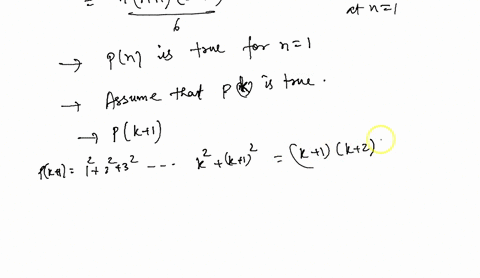 at n=1
6
→ P(n) is true for n=1
→ Assume that P(k) is true.
→ P(k+1)
P(k+1) = 1²+2²+3² --- k²+(k+1)² = (k+1)(k+2)